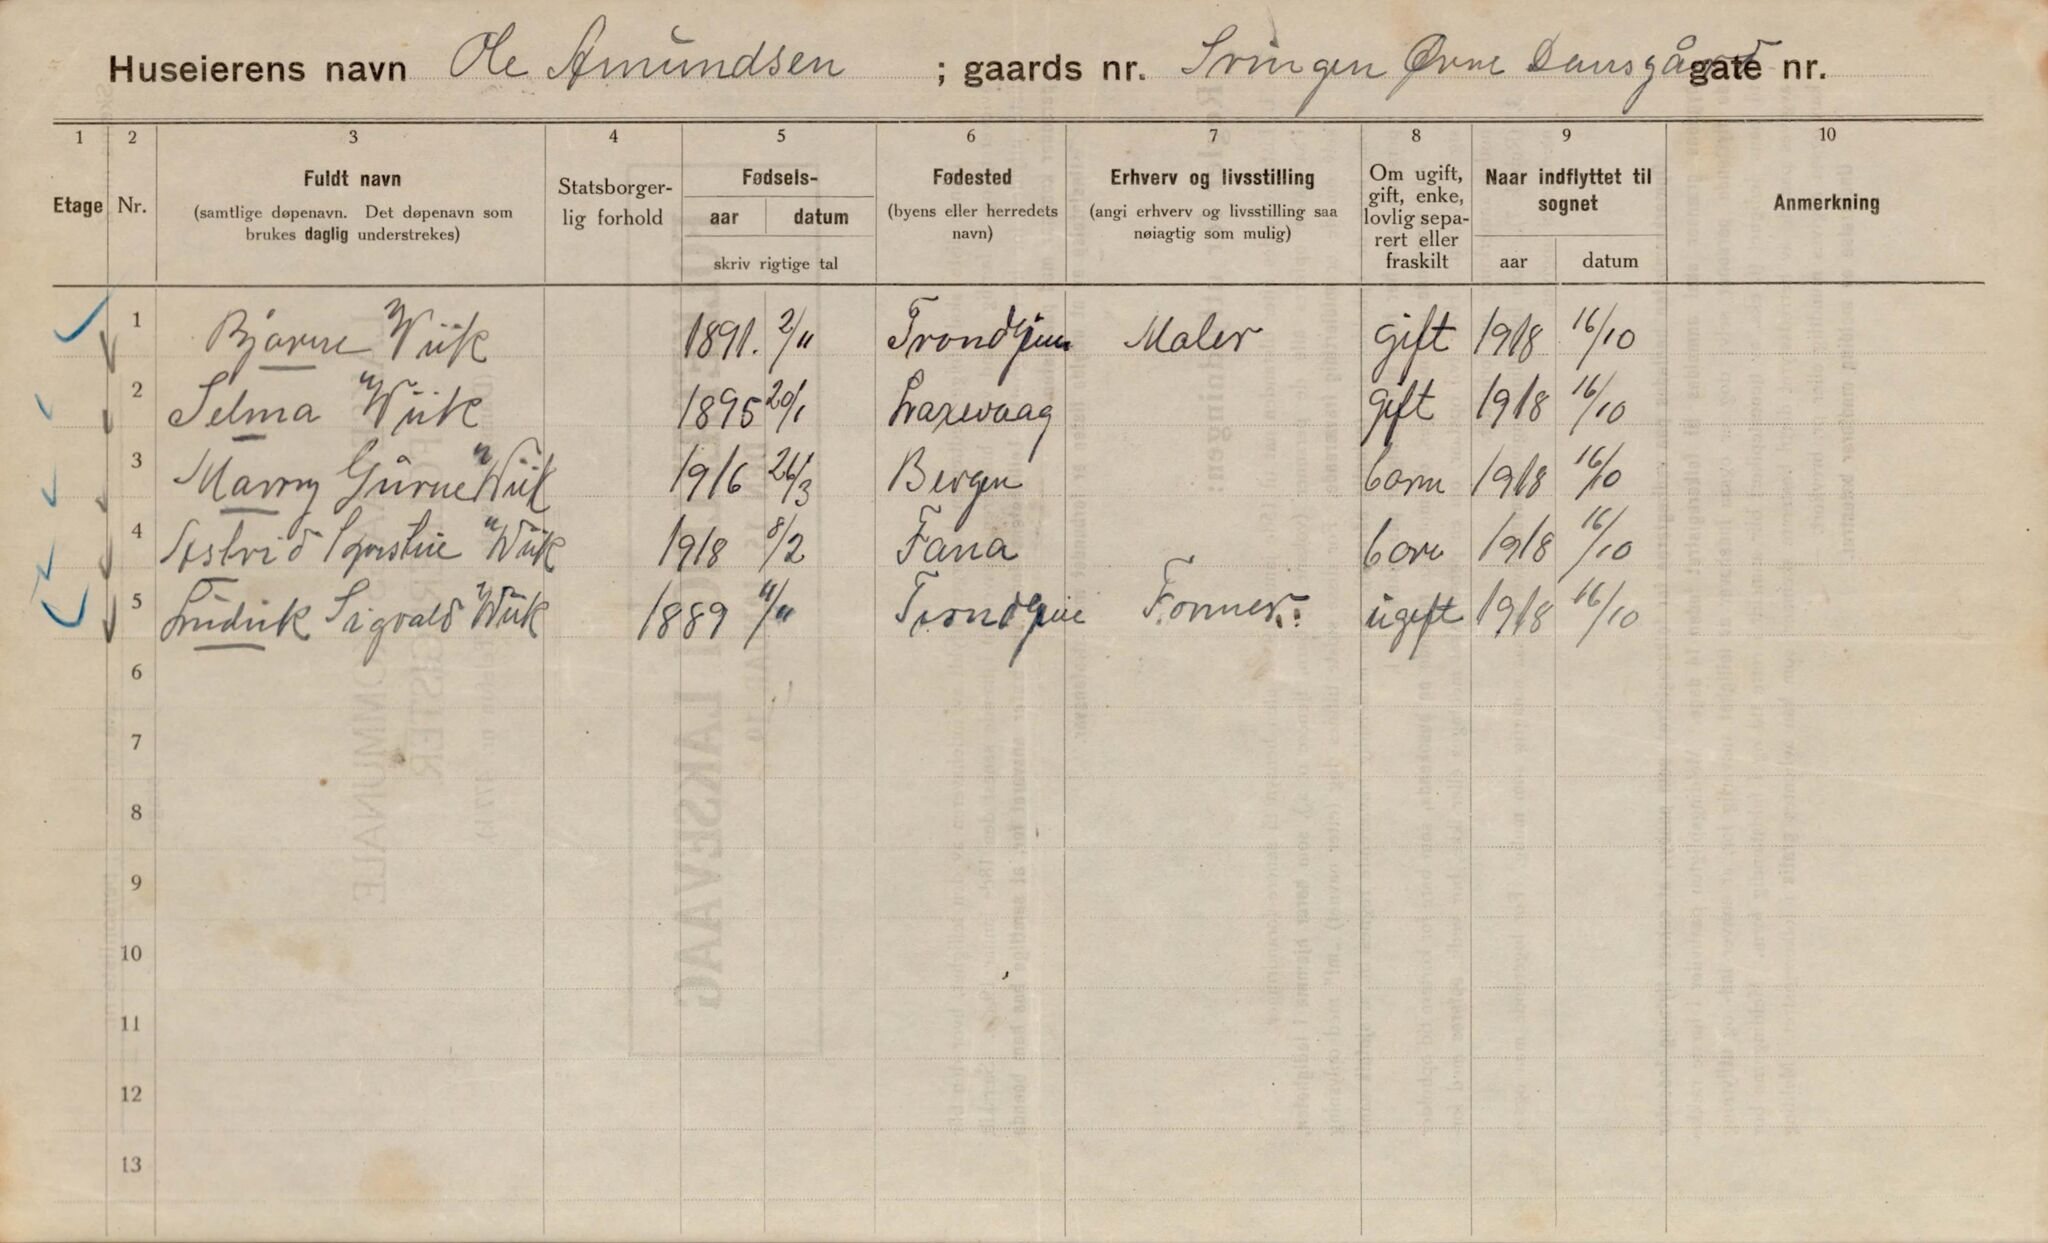 Huseierens navn Ole Amundsen ; gaards nr. Svingen Øvre Damsgård gate nr.
1 2 3 4 5 6 7 8 9 10
Etage Nr. Fuldt navn (samtlige døpenavn. Det døpenavn som brukes daglig understrekes) Statsborgerlig forhold Fødsels- aar datum skriv rigtige tal Fødested (byens eller herredets navn) Erhverv og livsstilling (angi erhverv og livsstilling saa nøiagtig som mulig) Om ugift, gift, enke, lovlig separert eller fraskilt Naar indflyttet til sognet aar datum Anmerkning
1 Bjarne Wiik 1891. 2/11 Trondhjem Maler gift 1918 16/10
2 Selma Wiik 1895 20/1 Laxevaag gift 1918 16/10
3 Marry Wiik 1916 26/3 Bergen barn 1918 16/10
4 Astrid Wiik 1918 8/2 Fana barn 1918 16/10
5 Sigvald Wiik 1889 11/11 Trondhjem Former. ugift 1918 16/10
6
7
8
9
10
11
12
13